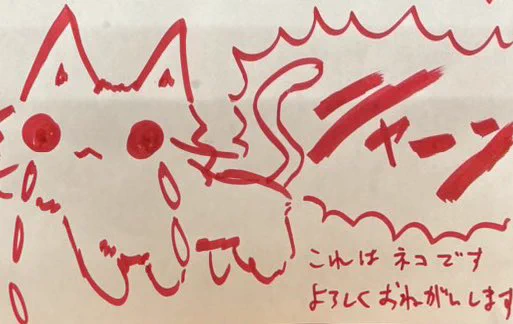 ニャーン
これは ネコです
よろしくおねがいします